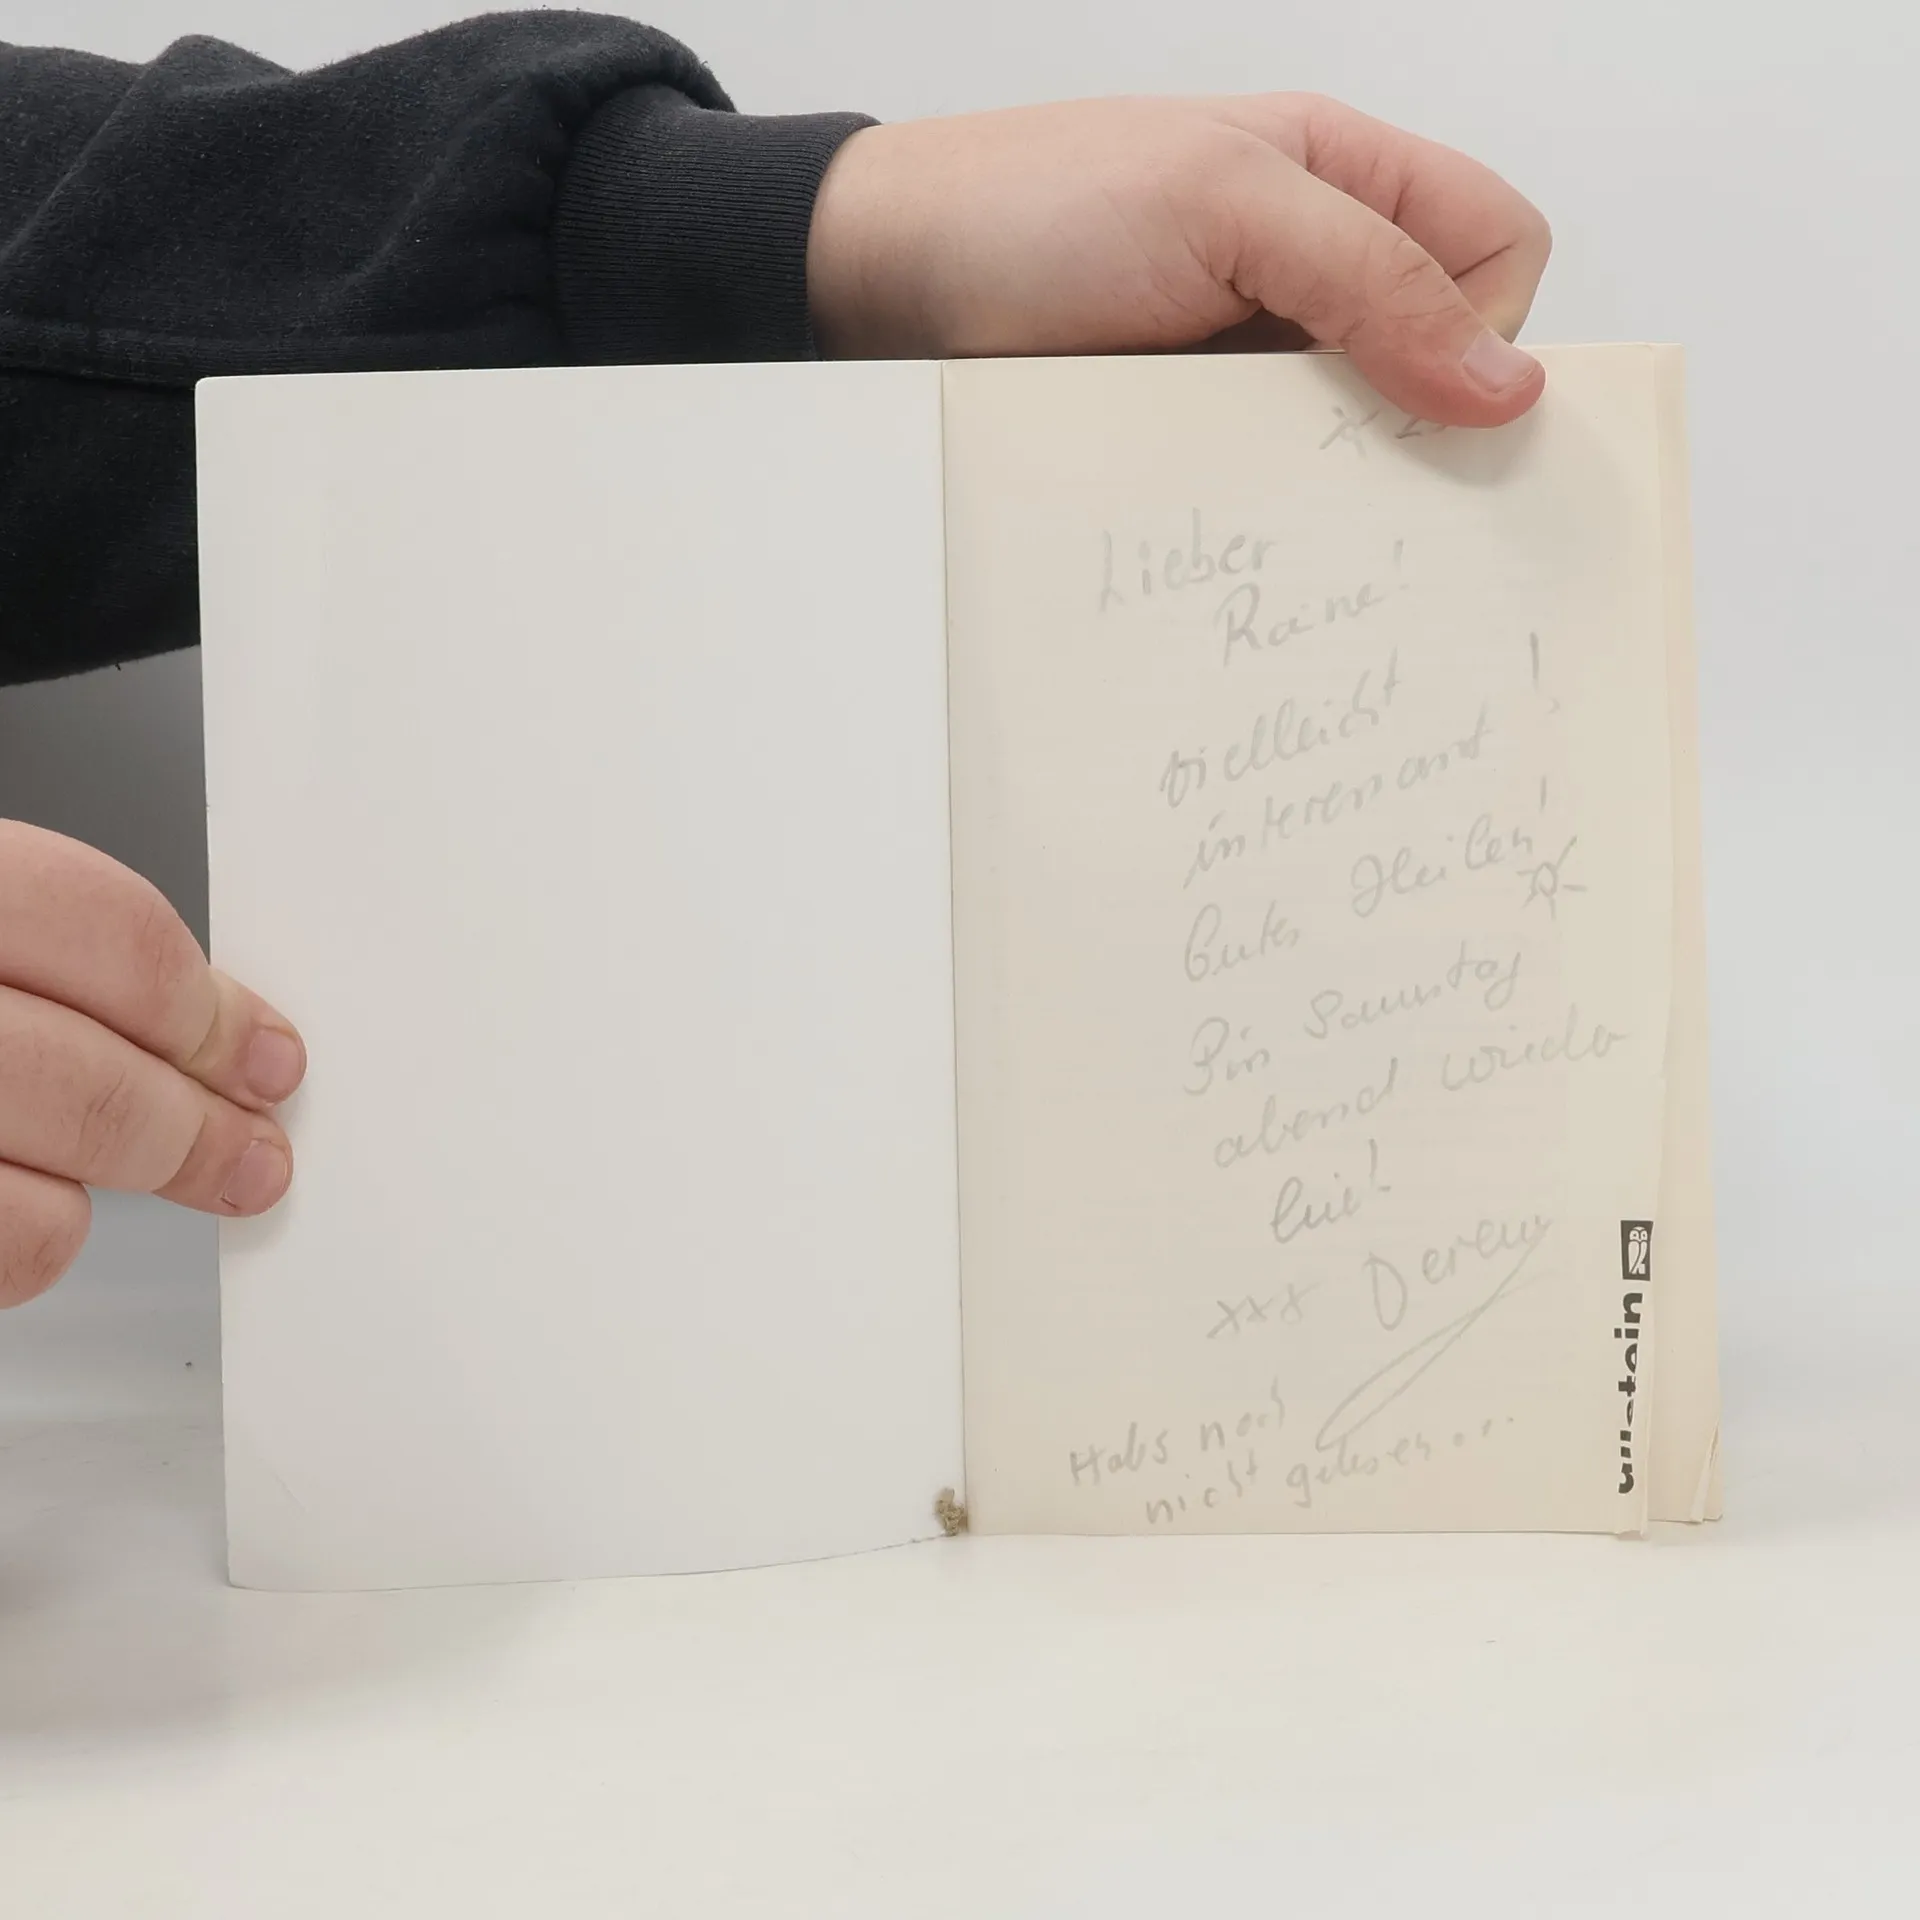 Lieber
Raine!
vielleicht
interessant!
Gutes Heilen!
Bin Samstag
abend wieder
hie!
xxx
Habs noch
nicht gelesen...
ullstein